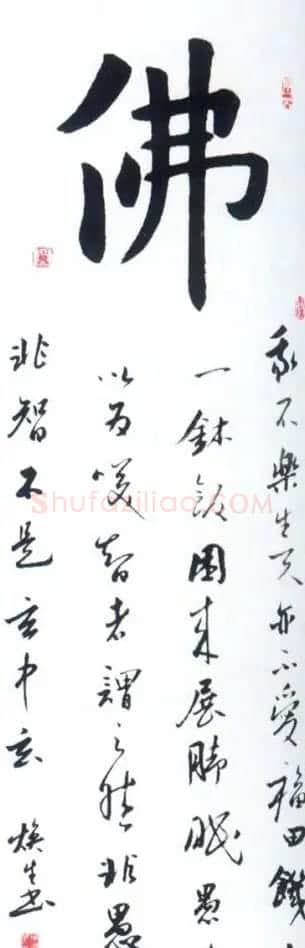 佛
我不樂生天亦不愛福田饑來
一鉢飯困來展脚眠愚
以為笑智者謂之然非愚
非智不是玄中玄 煥生书
Shufaziliao.COM